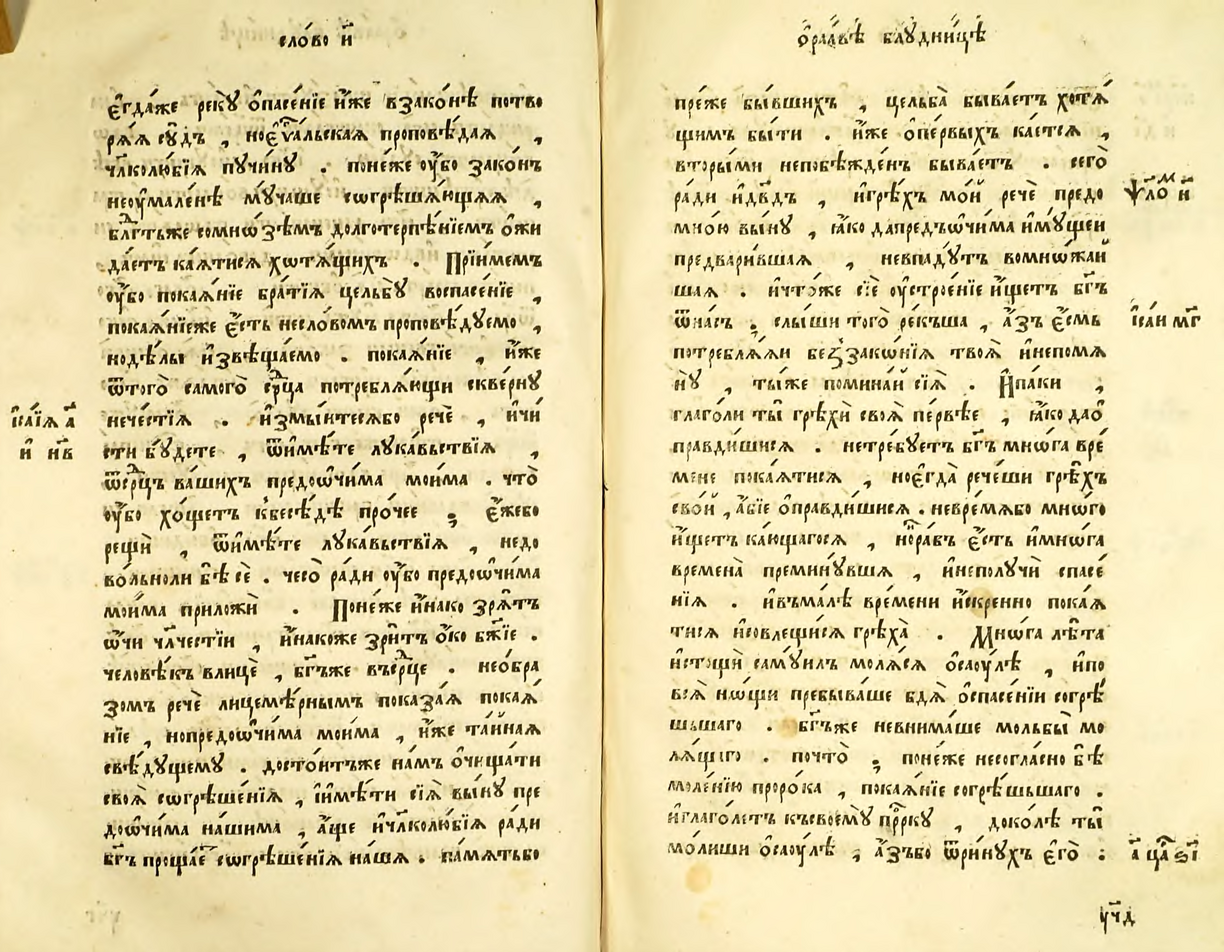 сло́во и҃
є҆гда́же рекꙋ̀ ѡ҆пасе́нїе и҆́же взако́нѣ потво
рѧ́ѧ сꙋ́дъ , ноеѵⷢ҇альскаѧ проповѣ́даѧ ,
чл҃колю́бїѧ пꙋчи́нꙋ . поне́же оу҆́бо зако́нъ
неоу҆мале́нѣ мꙋ́чаше сѡгрѣша́ющаѧ ,
блгⷣтьже сомнѡ́зѣмъ долготерпѣ́нїемъ ѻ҆жи
да́етъ ка́ѧтисѧ хѡтѧ́щихъ . Прїи́мемъ
оу҆́бо покаѧ́нїе бра́тїѧ цельбꙋ̀ воспасе́нїе ,
покаѧ́нїеже є҆́сть несло́вомъ проповѣ́дꙋемо ,
нодѣ́лы и҆звѣща́емо . покаѧ́нїе , и҆́же
ѿтого̀ самого̀ срⷣца потреблѧ́ющи скве́рнꙋ
нече́стїѧ . и҆змы́итесѧбо речѐ , и҆чи́
сти бꙋ́дете , ѿимѣ́те лꙋка́вьствїѧ ,
ѿсрⷣцъ ва́шихъ предоѡ҆чи́ма мои́ма . что̀
оу҆́бо хо́щетъ кбесѣ́дѣ про́чее ; є҆́жебо
рещѝ , ѿимѣ́те лꙋка́вьствїѧ , недо
во́льноли бѣ̀ сѐ . чесо̀ ра́ди оу҆́бо предоѡ҆чи́ма
мои́ма приложѝ . Поне́же и҆на́ко зрѧ́тъ
ѡ҆́чи чл҃честїи , и҆на́коже зри́тъ ѻ҆́ко бж҃їе .
человѣ́къ влицѐ , бг҃ъже въсрⷣце . нео́бра
зомъ речѐ лицемѣ́рнымъ показа́ѧ покаѧ́
нїе , нопредоѡ҆чи́ма мои́ма , и҆́же та́йнаѧ
свѣ́дꙋщемꙋ . досто́итъже на́мъ ѡ҆чища́ти
своѧ̀ сѡгрѣше́нїѧ , і҆имѣ́ти сїѧ̀ вы́нꙋ пре
доѡ҆чи́ма на́шима , а҆́ще и҆чл҃колю́бїѧ ра́ди
бг҃ъ проща́еⷮ сѡгрѣше́нїѧ на́ша . па́мѧтьбо
і҆са́їѧ а҃
и҃ нв҃
ѻ҆раа́вѣ блꙋдни́цѣ
пре́же бы́вшихъ , цельба̀ быва́етъ хотѧ́
щимъ бы́ти . и҆́же ѻ҆пе́рвыхъ ка́етсѧ ,
вторы́ми непобѣжде́нъ быва́етъ . сего̀
ра́ди и҆дв҃дъ , и҆грѣ́хъ мо́й речѐ предо
мно́ю вы́нꙋ , ꙗ҆́ко дапредъѡ҆чи́ма и҆мꙋ́щеи
предвари́вшаѧ , невпадꙋ́тъ вомнѡ́жай
шаѧ . и҆что́же сїѐ оу҆строе́нїе и҆́щетъ бг҃ъ
ѿна́съ ; слы́ши того̀ ре́къша , а҆́зъ є҆́смь
потреблѧ́ѧи беззако́нїѧ твоѧ̀ и҆непомѧ
нꙋ̀ , ты́же помина́й сїѧ̀ . И҆па́ки ,
глаго́ли ты̀ грѣхѝ своѧ̀ пе́рвѣе , ꙗ҆́ко даѻ҆
правди́шисѧ . нетре́бꙋетъ бг҃ъ мно́га вре́
мене пока́ѧтисѧ , ноє҆гда̀ рече́ши грѣ́хъ
сво́й , а҆́бїе ѻ҆правди́шисѧ . невре́мѧбо мно́го
и҆́щетъ ка́ющагосѧ , но́равъ є҆́сть и҆мно́га
времена̀ премину́вша , и҆неполꙋчѝ спасе́
нїѧ . и҆въма́лѣ вре́мени и҆́скренно пока́ѧ
тисѧ и҆совлещи́сѧ грѣха̀ . Мнѡ́га лѣ́та
и҆стощѝ самꙋ́илъ молѧ́сѧ ѻ҆саꙋ́лѣ , и҆по
всѧ̀ нѡ́щи пребыва́ше бдѧ̀ ѻ҆спасе́нїи согрѣ
шьшаго . бг҃ъже невнима́ше мольбы̀ мо
лѧ́щаго . почто̀ ; поне́же несогла́сно бѣ̀
моле́нїю проро́ка , покаѧ́нїе согрѣ́шьшаго .
и҆глаго́летъ късвоемꙋ̀ прⷪ҇ркꙋ , доко́лѣ ты̀
мо́лиши ѻ҆саꙋ́лѣ , а҆́зъбо ѿри́нꙋхъ є҆го̀ :
ѱало́ⷨ н҃
і҆са́и мг҃
а҃ цⷭ҇а ѕ҃і
уч҃д